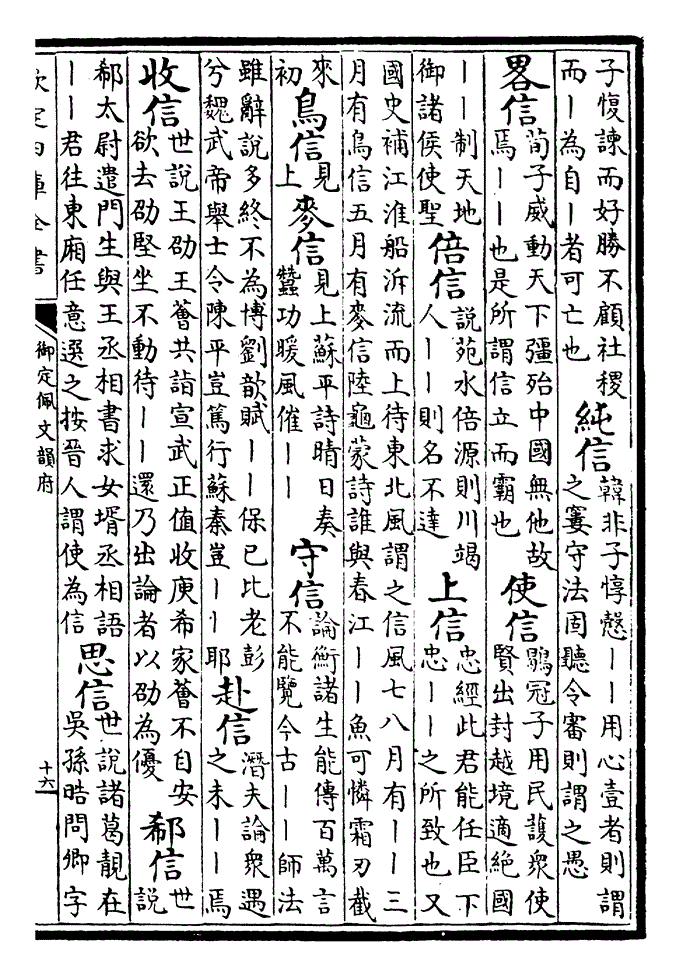 子愎諫而好勝不顧社稷
而丨為自丨者可亡也
純信
韓非子惇慤丨丨用心壹者則謂
之窶守法固聽令審則謂之愚
畧信
荀子威動天下彊殆中國無他故
焉丨丨也是所謂信立而霸也
使信
鶡冠子用民䕶衆使
賢出封越境適絶國
丨丨制天地
御諸侯使聖
倍信
說苑水倍源則川竭
人丨丨則名不達
上信
忠經此君能任臣下
忠丨丨之所致也又
國史補江淮船泝流而上待東北風謂之信風七八月有丨丨三
月有鳥信五月有麥信陸龜蒙詩誰與春江丨丨魚可憐霜刃截
來
初
鳥信
見
上
麥信
見上蘇平詩晴日奏
蠶功暖風催丨丨
守信
論衡諸生能傳百萬言
不能覽今古丨丨師法
雖辭說多終不為博劉歆賦丨丨保已比老彭
兮魏武帝舉士令陳平豈篤行蘇秦豈丨丨耶
赴信
潛夫論衆遇
之未丨丨焉
收信
世說王劭王薈共詣宣武正值收庾希家薈不自安
欲去劭堅坐不動待丨丨還乃出論者以劭為優
郗信
世
說
郗太尉遣門生與王丞相書求女壻丞相語
丨丨君往東廂任意選之按晉人謂使為信
思信
世說諸葛靚在
吳孫晧問卿字
欽定四庫全書
御定佩文韻府
十六